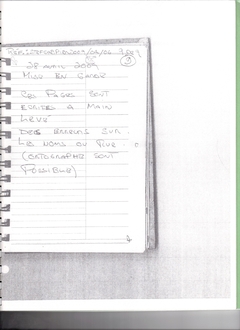 28 avril 2009
MISE EN GARDE
CES PAGES SONT
ECRITES A MAIN
LEVÉ
DES ERREURS SUR
LES NOMS OU PLUS
(ORTOGRAPHE SONT
POSSIBLE)